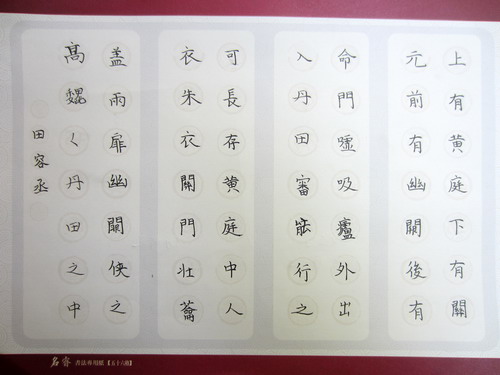 上有黃庭下有關
元前有幽闕後有
命門噓吸廬外出
入丹田審能行之
可長存黃庭中人
衣朱衣關門壯蘥
盖雨扉幽闕俠之
髙巍々丹田之中
田容丞
書法專用紙【五十六格】